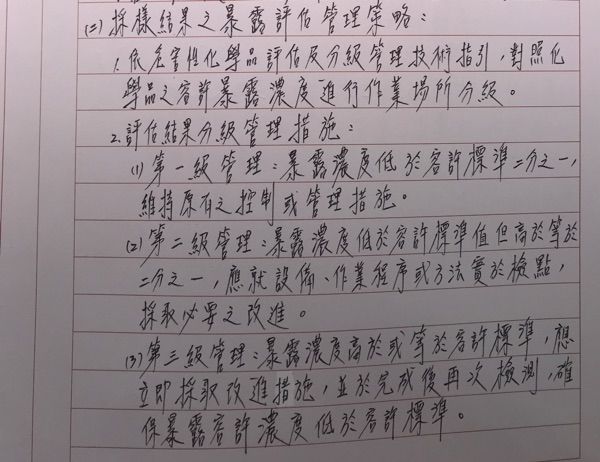 (二)採樣結果之暴露評估管理策略：
1.依危害性化學品評估及分級管理技術指引，對照化
學品之容許暴露濃度進行作業場所分級。
2.評估結果分級管理措施：
(1)第一級管理：暴露濃度低於容許標準二分之一，
維持原有之控制或管理措施。
(2)第二級管理：暴露濃度低於容許標準值但高於等於
二分之一，應就設備、作業程序或方法實於檢點，
採取必要之改進。
(3)第三級管理：暴露濃度高於或等於容許標準，應
立即採取改進措施，並於完成後再次檢測，確
保暴露容許濃度低於容許標準。